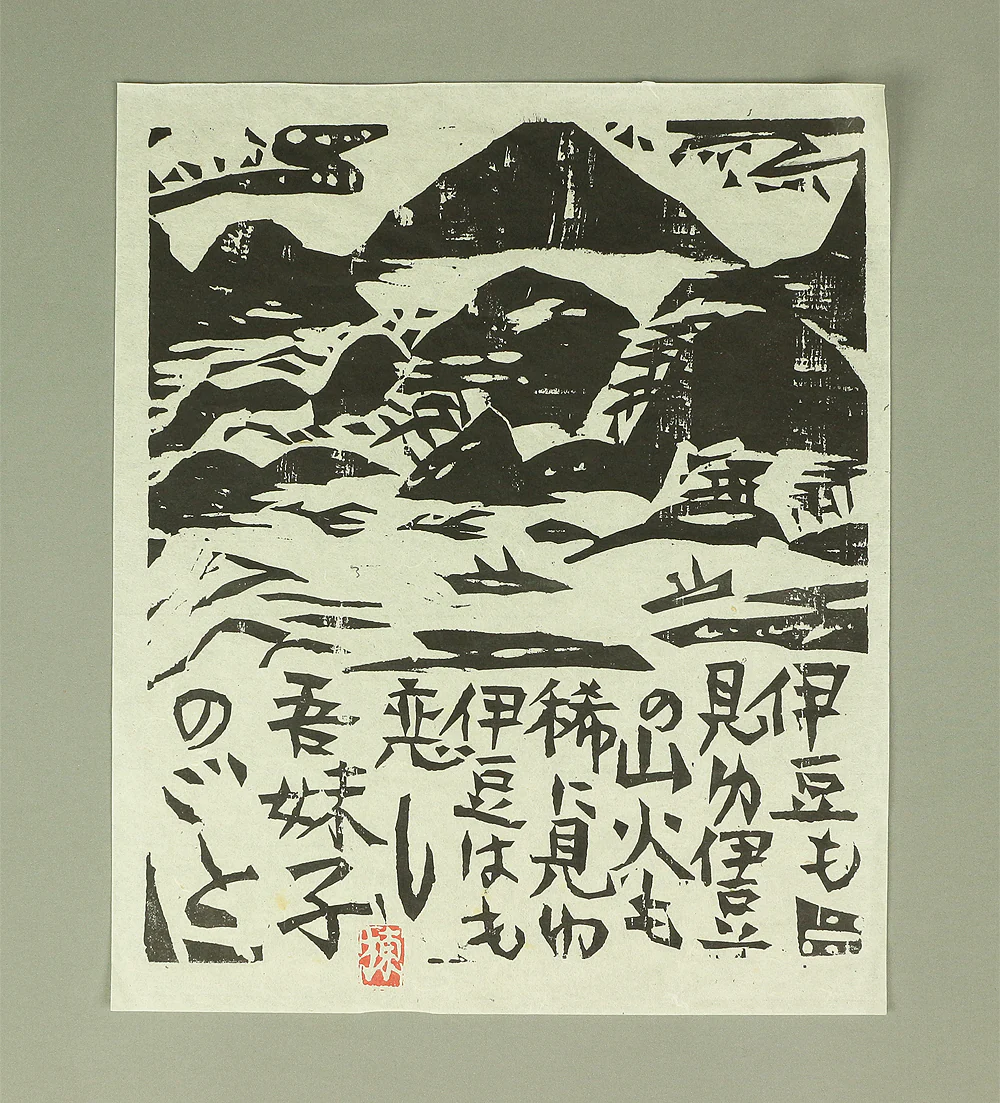 伊豆も
見ゆ伊豆
の山火も
稀に見ゆ
伊豆はも
恋し
吾妹子
のごと
棟